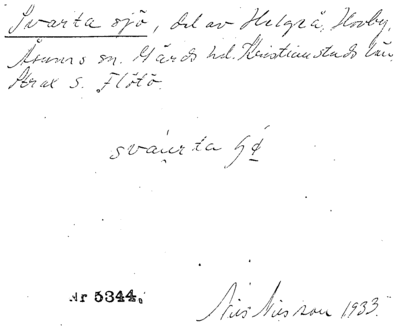 Svarta sjö, del av Helgeå, Hovby,
Åsums sn. Gärds hd. Kristianstads län
Strax s. Flötö.
svárta
Nr 5344.
Nils Nilsson 1933.